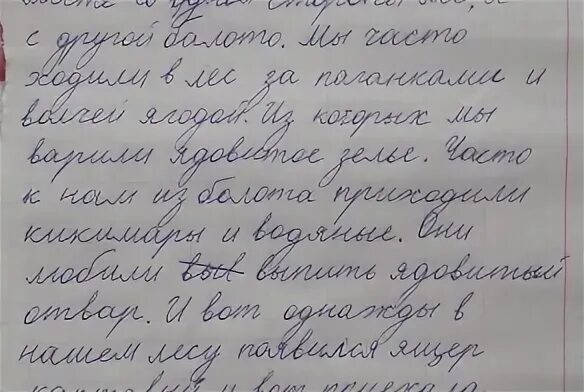 с одной стороны лес, а
с другой балото. Мы часто
ходили в лес за паганками и
волчей ягодой. Из которых мы
варили ядовитое зелье. Часто
к нам из болота приходили
кикимары и водяные. Они
любили вып выпить ядовитый
отвар. И вот однажды в
нашем лесу появился ящер
и вот приехала